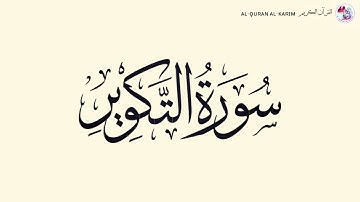 AL-QURAN AL-KARIM القرآن الكريم
سُورَةُ التَّكْوِيرِ